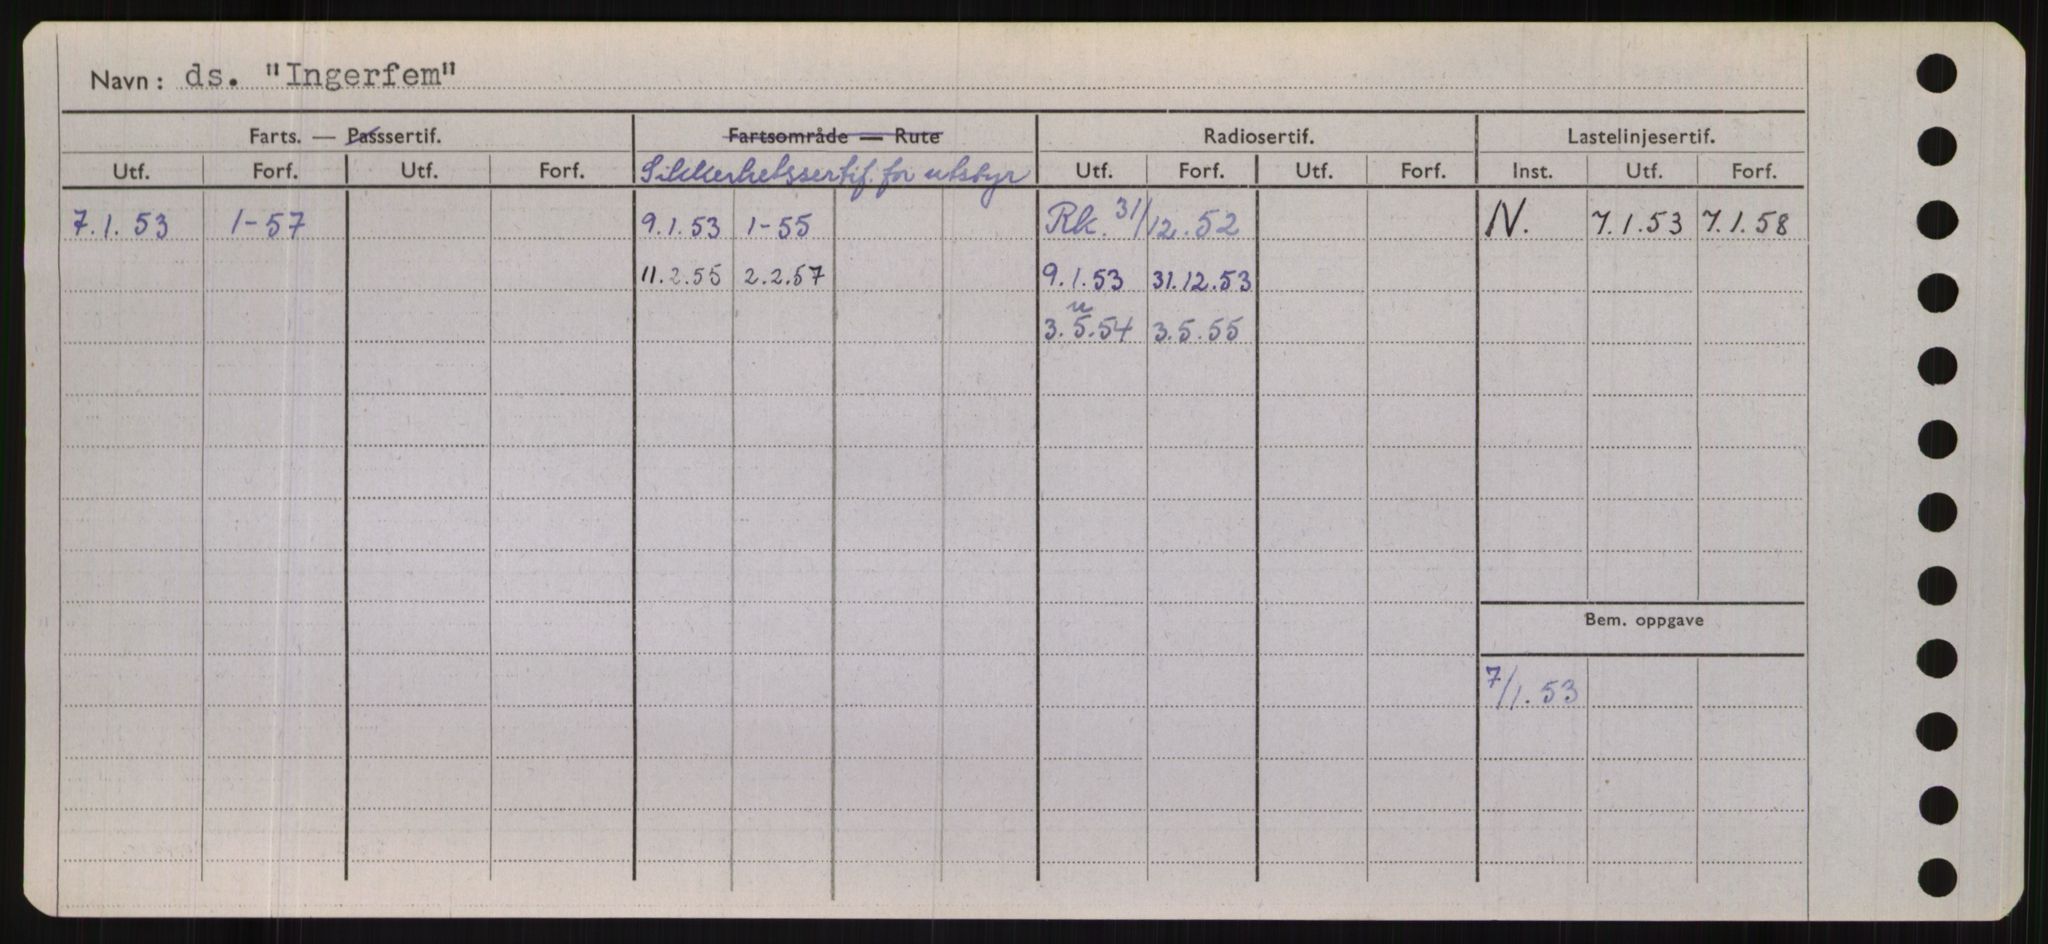 Navn: ds. "Ingerfem"
Farts. — Passsertif. Fartsområde — Rute Radiosertif. Lastelinjesertif.
Utf. Forf. Utf. Forf. Sikkerhetssertif. for utstyr Utf. Forf. Utf. Forf. Inst. Utf. Forf.
7.1.53 1-57 9.1.53 1-55 Rk. 31/12.52 N. 7.1.53 7.1.58
11.2.55 2.2.57 9.1.53 31.12.53
u
3.5.54 3.5.55
Bem. oppgave
7/1.53